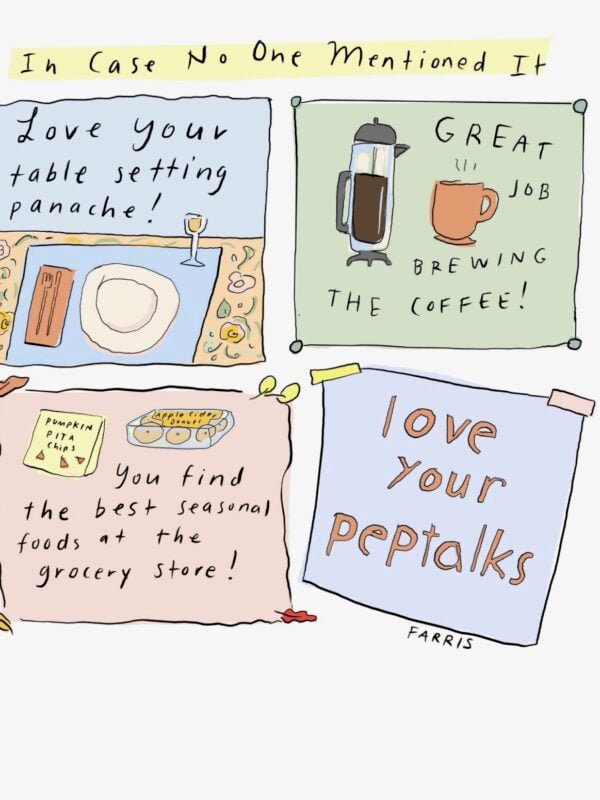 In Case No One Mentioned It
Love your
table setting
panache!
GREAT
JOB
BREWING
THE COFFEE!
PUMPKIN
PITA
Chips
Apple Cider
Donuts
You find
the best seasonal
foods at the
grocery store!
love
your
peptalks
FARRIS